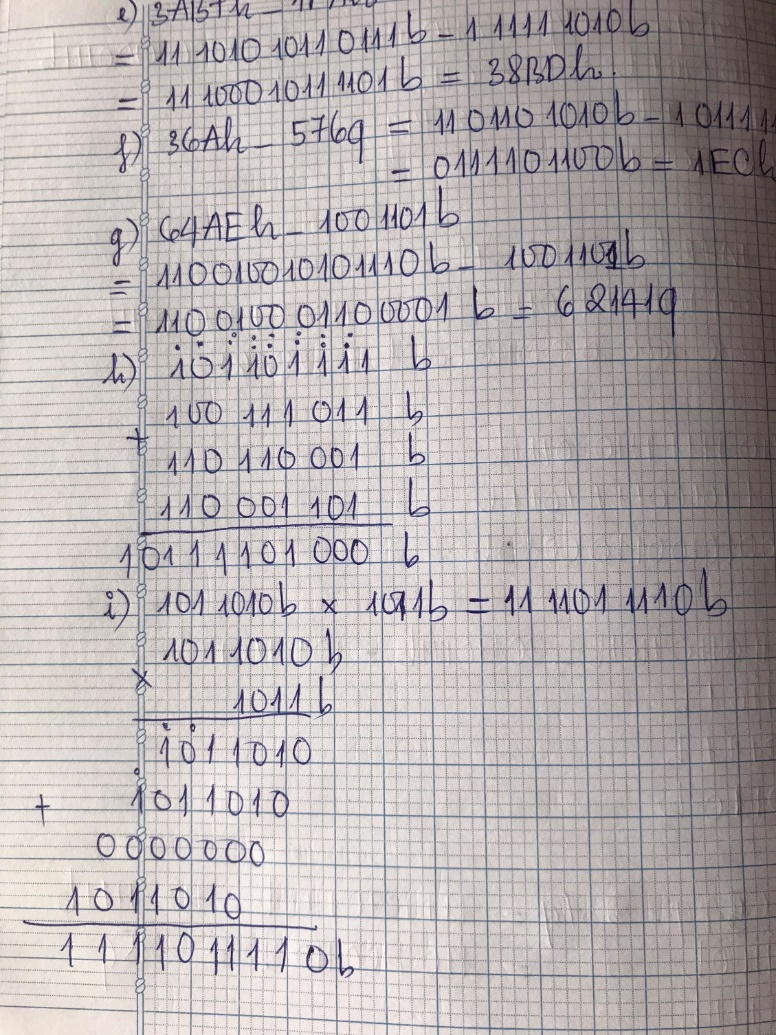 e) 3AB7h -
= 11 1010 1011 0111b - 1 1111 1010b
= 11 1000 1011 1101b = 38BDh.
f) 36Ah - 576q = 11 0110 1010b - 1 01111
= 0111101100b = 1ECh
g) 64AEh - 1001101b
= 110010010101110b - 1001101b
= 110 0100 0110 0001 b = 62141q
h) 101 101 111 b
100 111 011 b
+
110 110 001 b
110 001 101 b
10111101 000 b
i) 101 1010b × 1011b = 11 1101 1110b
1011010b
×
1011b
1011010
+ 1011010
0000000
1011010
1111011110b